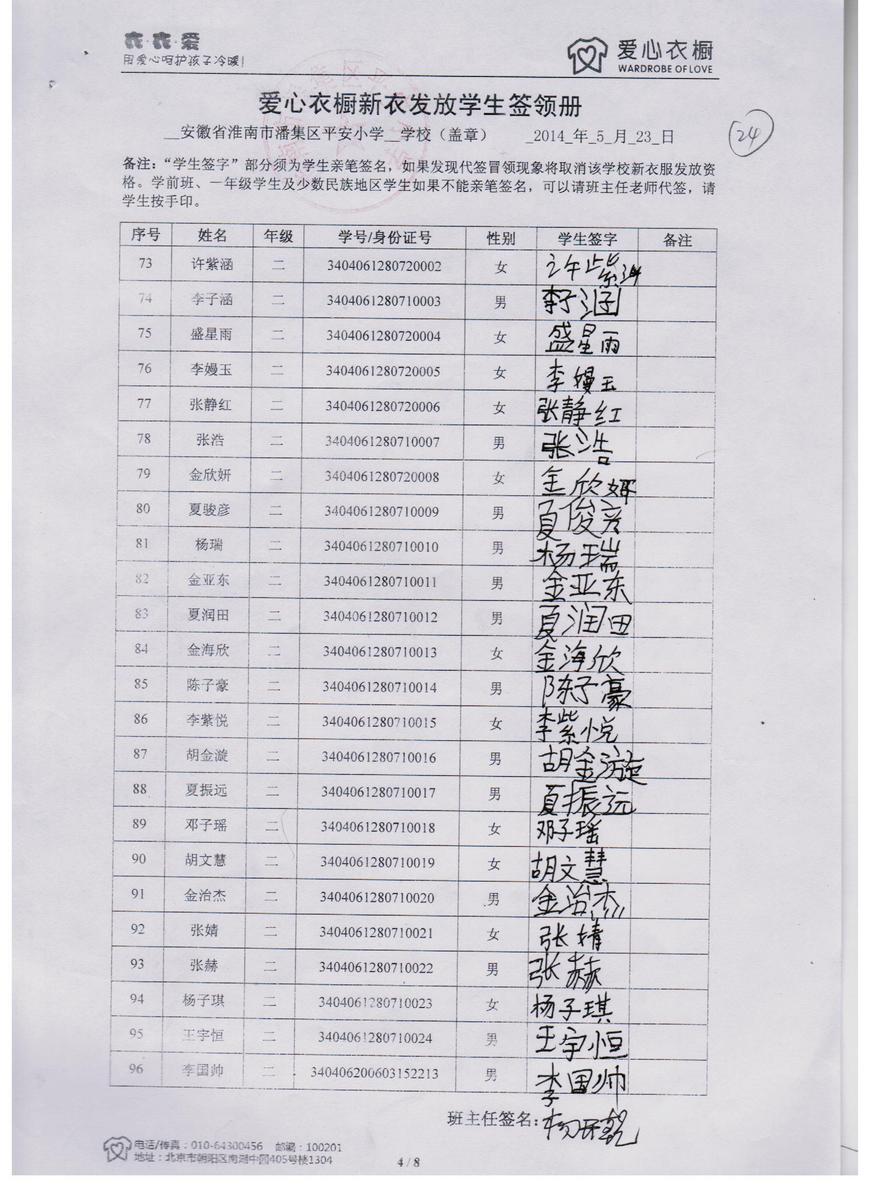 衣·衣·爱
用爱心呵护孩子冷暖!
爱心衣橱
WARDROBE OF LOVE
爱心衣橱新衣发放学生签领册
__安徽省淮南市潘集区平安小学__学校（盖章） _2014_年_5_月_23_日
24
备注：“学生签字”部分须为学生亲笔签名，如果发现代签冒领现象将取消该学校新衣服发放资
格。学前班、一年级学生及少数民族地区学生如果不能亲笔签名，可以请班主任老师代签，请
学生按手印。
序号 姓名 年级 学号/身份证号 性别 学生签字 备注
73 许紫涵 二 3404061280720002 女 许紫涵
74 李子涵 二 3404061280710003 男 李子涵
75 盛星雨 二 3404061280720004 女 盛星雨
76 李嫚玉 二 3404061280720005 女 李嫚玉
77 张静红 二 3404061280720006 女 张静红
78 张浩 二 3404061280710007 男 张浩
79 金欣妍 二 3404061280720008 女 金欣妍
80 夏骏彦 二 3404061280710009 男 夏俊彦
81 杨瑞 二 3404061280710010 男 杨瑞
82 金亚东 二 3404061280710011 男 金亚东
83 夏润田 二 3404061280710012 男 夏润田
84 金海欣 二 3404061280710013 女 金海欣
85 陈子豪 二 3404061280710014 男 陈子豪
86 李紫悦 二 3404061280710015 女 李紫悦
87 胡金漩 二 3404061280710016 男 胡金漩
88 夏振远 二 3404061280710017 男 夏振远
89 邓子瑶 二 3404061280710018 女 邓子瑶
90 胡文慧 二 3404061280710019 女 胡文慧
91 金治杰 二 3404061280710020 男 金治杰
92 张婧 二 3404061280710021 女 张婧
93 张赫 二 3404061280710022 男 张赫
94 杨子琪 二 3404061280710023 女 杨子琪
95 王宇恒 二 3404061280710024 男 王宇恒
96 李国帅 二 340406200603152213 男 李国帅
班主任签名：
电话/传真：010-64300456 邮编：100201
地址：北京市朝阳区南湖中园405号楼1304
4 / 8